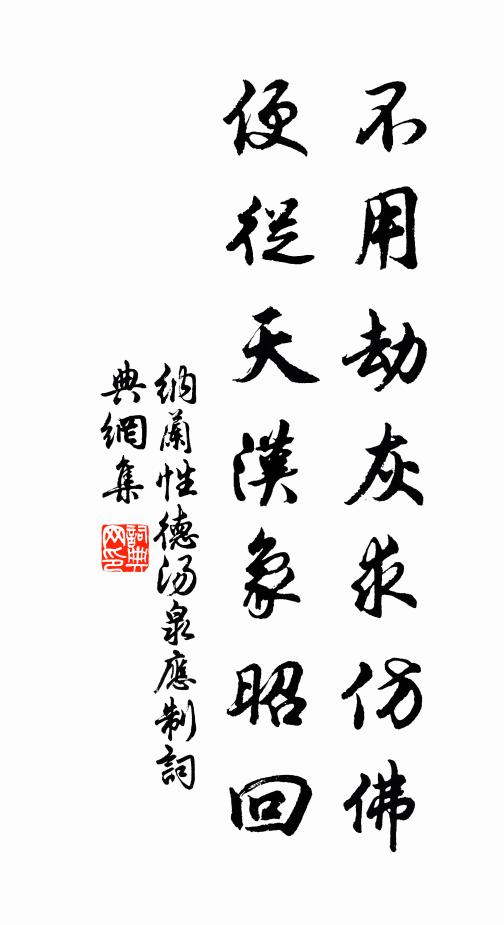 不用劫灰求仿佛
便從天漢象昭回
納蘭性德湯泉應制詞
典網集
詞典
网印